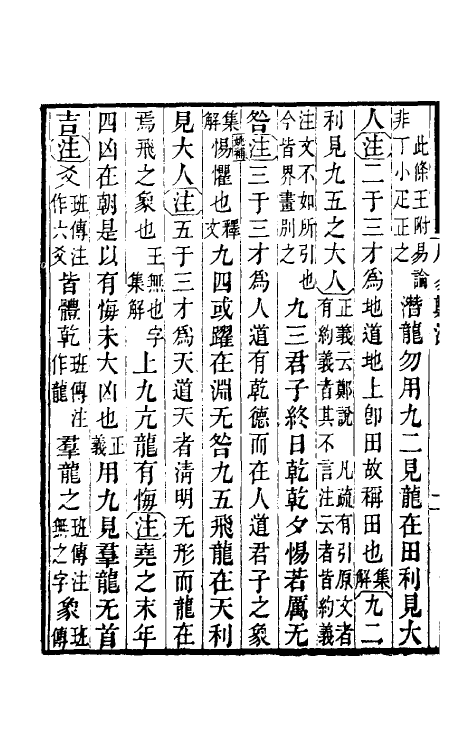 此條王附易論非丁小疋正之潛龍勿用九二見龍在田利見大
人注二于三才爲地道地上卽田故稱田也集解九二
利見九五之大人正義云鄭說凡疏有引原文者有約義者其不言注云者皆約義
注文不如所引也今皆界畫別之九三君子終日乾乾夕惕若厲无
咎注姚補三于三才爲人道有乾德而在人道君子之象
集解惕懼也釋文九四或躍在淵无咎九五飛龍在天利
見大人注五于三才爲天道天者淸明无形而龍在
焉飛之象也王無也字集解上九亢龍有悔注堯之末年
四凶在朝是以有悔未大凶也正義用九見羣龍无首
吉注爻班傳注作六爻皆體乾班傳注作龍羣龍之班傳注無之字象班傳